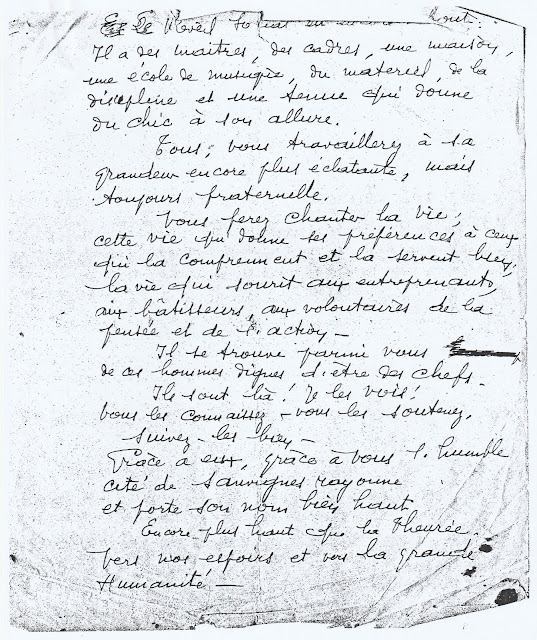 Le Réveil
Il a des maitres, des cadres, une maison,
une école de musique, du materiel, de la
discipline et une tenue qui donne
du chic à son allure.
Tous, vous travaillerez à sa
grandeur encore plus éclatante, mais
toujours fraternelle.
Vous ferez chanter la vie ;
cette vie qui donne ses préférences à ceux
qui la comprennent et la servent bien,
la vie qui sourit aux entreprenants,
aux bâtisseurs, aux volontaires de la
pensée et de l'action —
Il se trouve parmi vous
de ces hommes dignes d'être des chefs —
Ils sont là ! Je les vois !
Vous les connaissez — vous les soutenez,
Suivez-les bien —
Grâce à eux, grâce à vous l'humble
cité de Sanvignes rayonne
et porte son nom bien haut
Encore plus haut que la Theurée,
vers nos espoirs et vers la grande
Humanité —